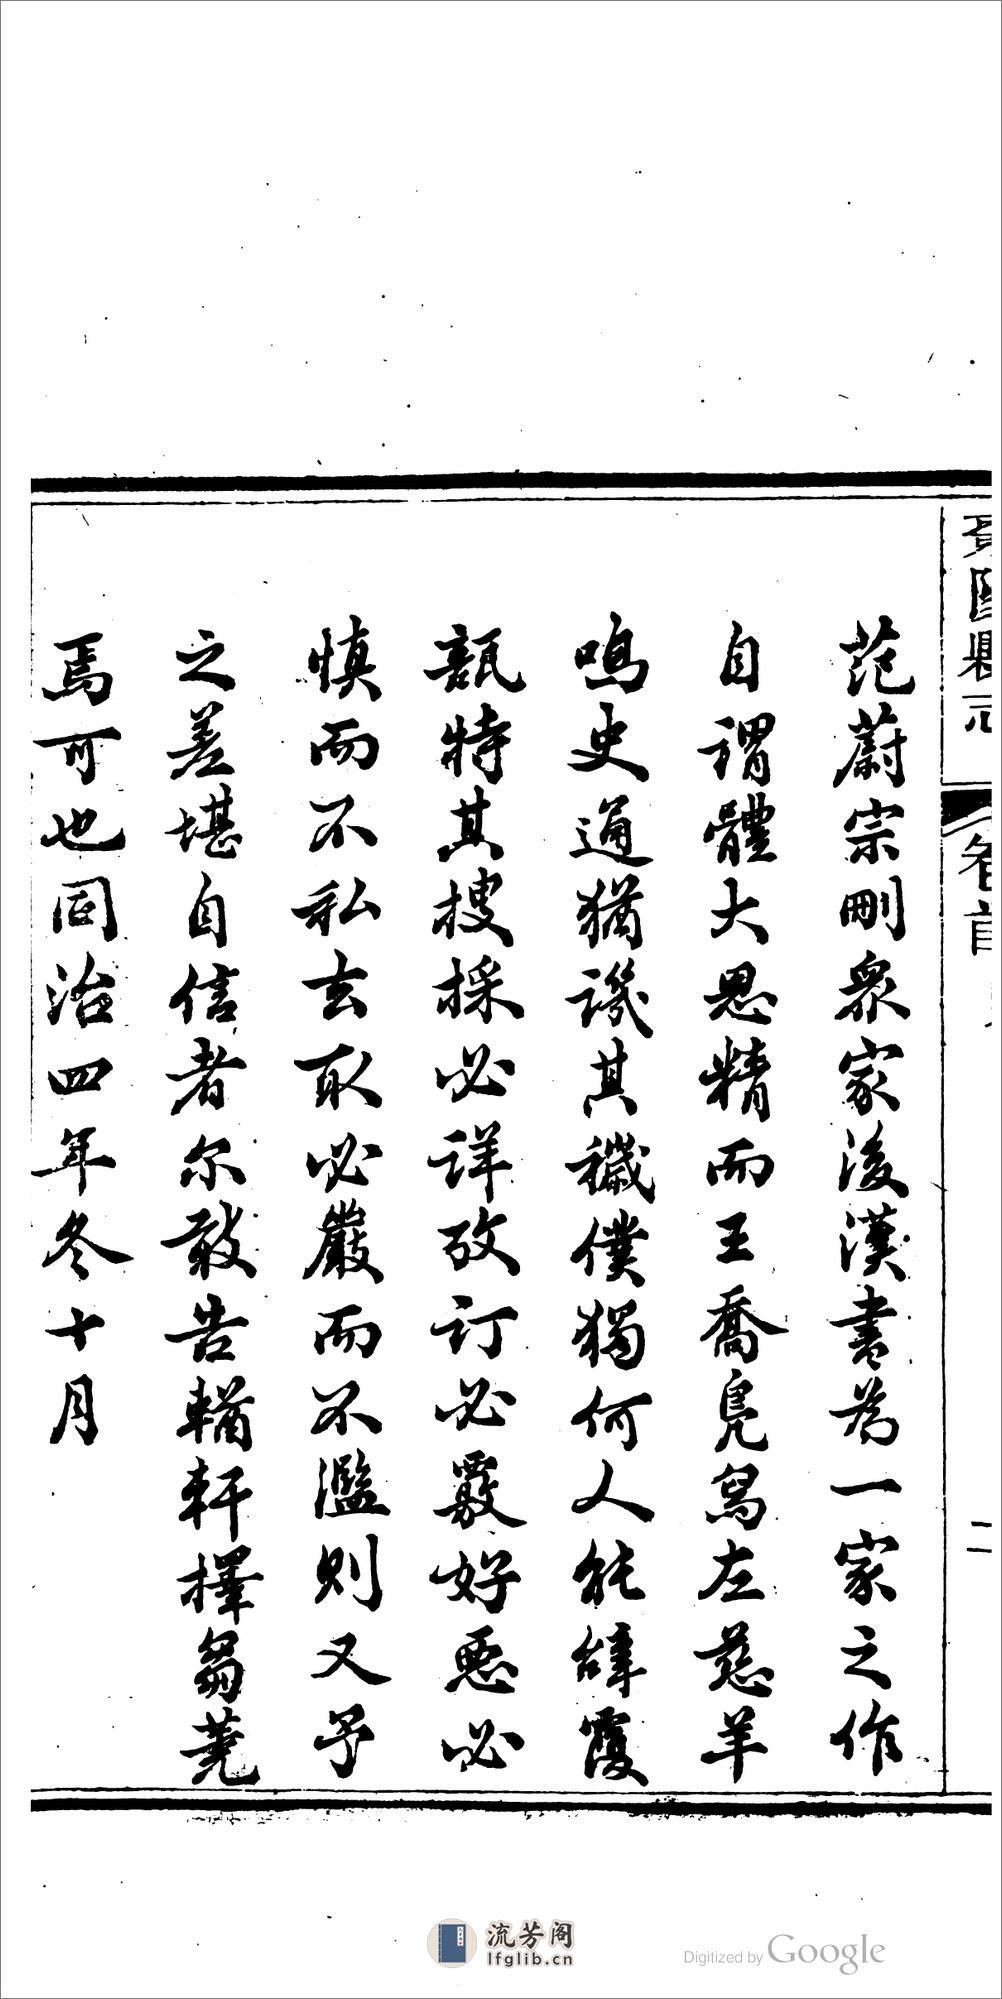 范蔚宗刪衆家後漢書為一家之作
自謂體大思精而王喬鳧舄左慈羊
鳴史通猶譏其穢僕獨何人能辭覆
瓿特其搜採必詳攷訂必覈好惡必
慎而不私去取必嚴而不濫則又予
之差堪自信者尔敢告輶軒擇芻蕘
焉可也同治四年冬十月
縣志
卷首
二
流芳阁
lfglib.cn
Digitized by Google